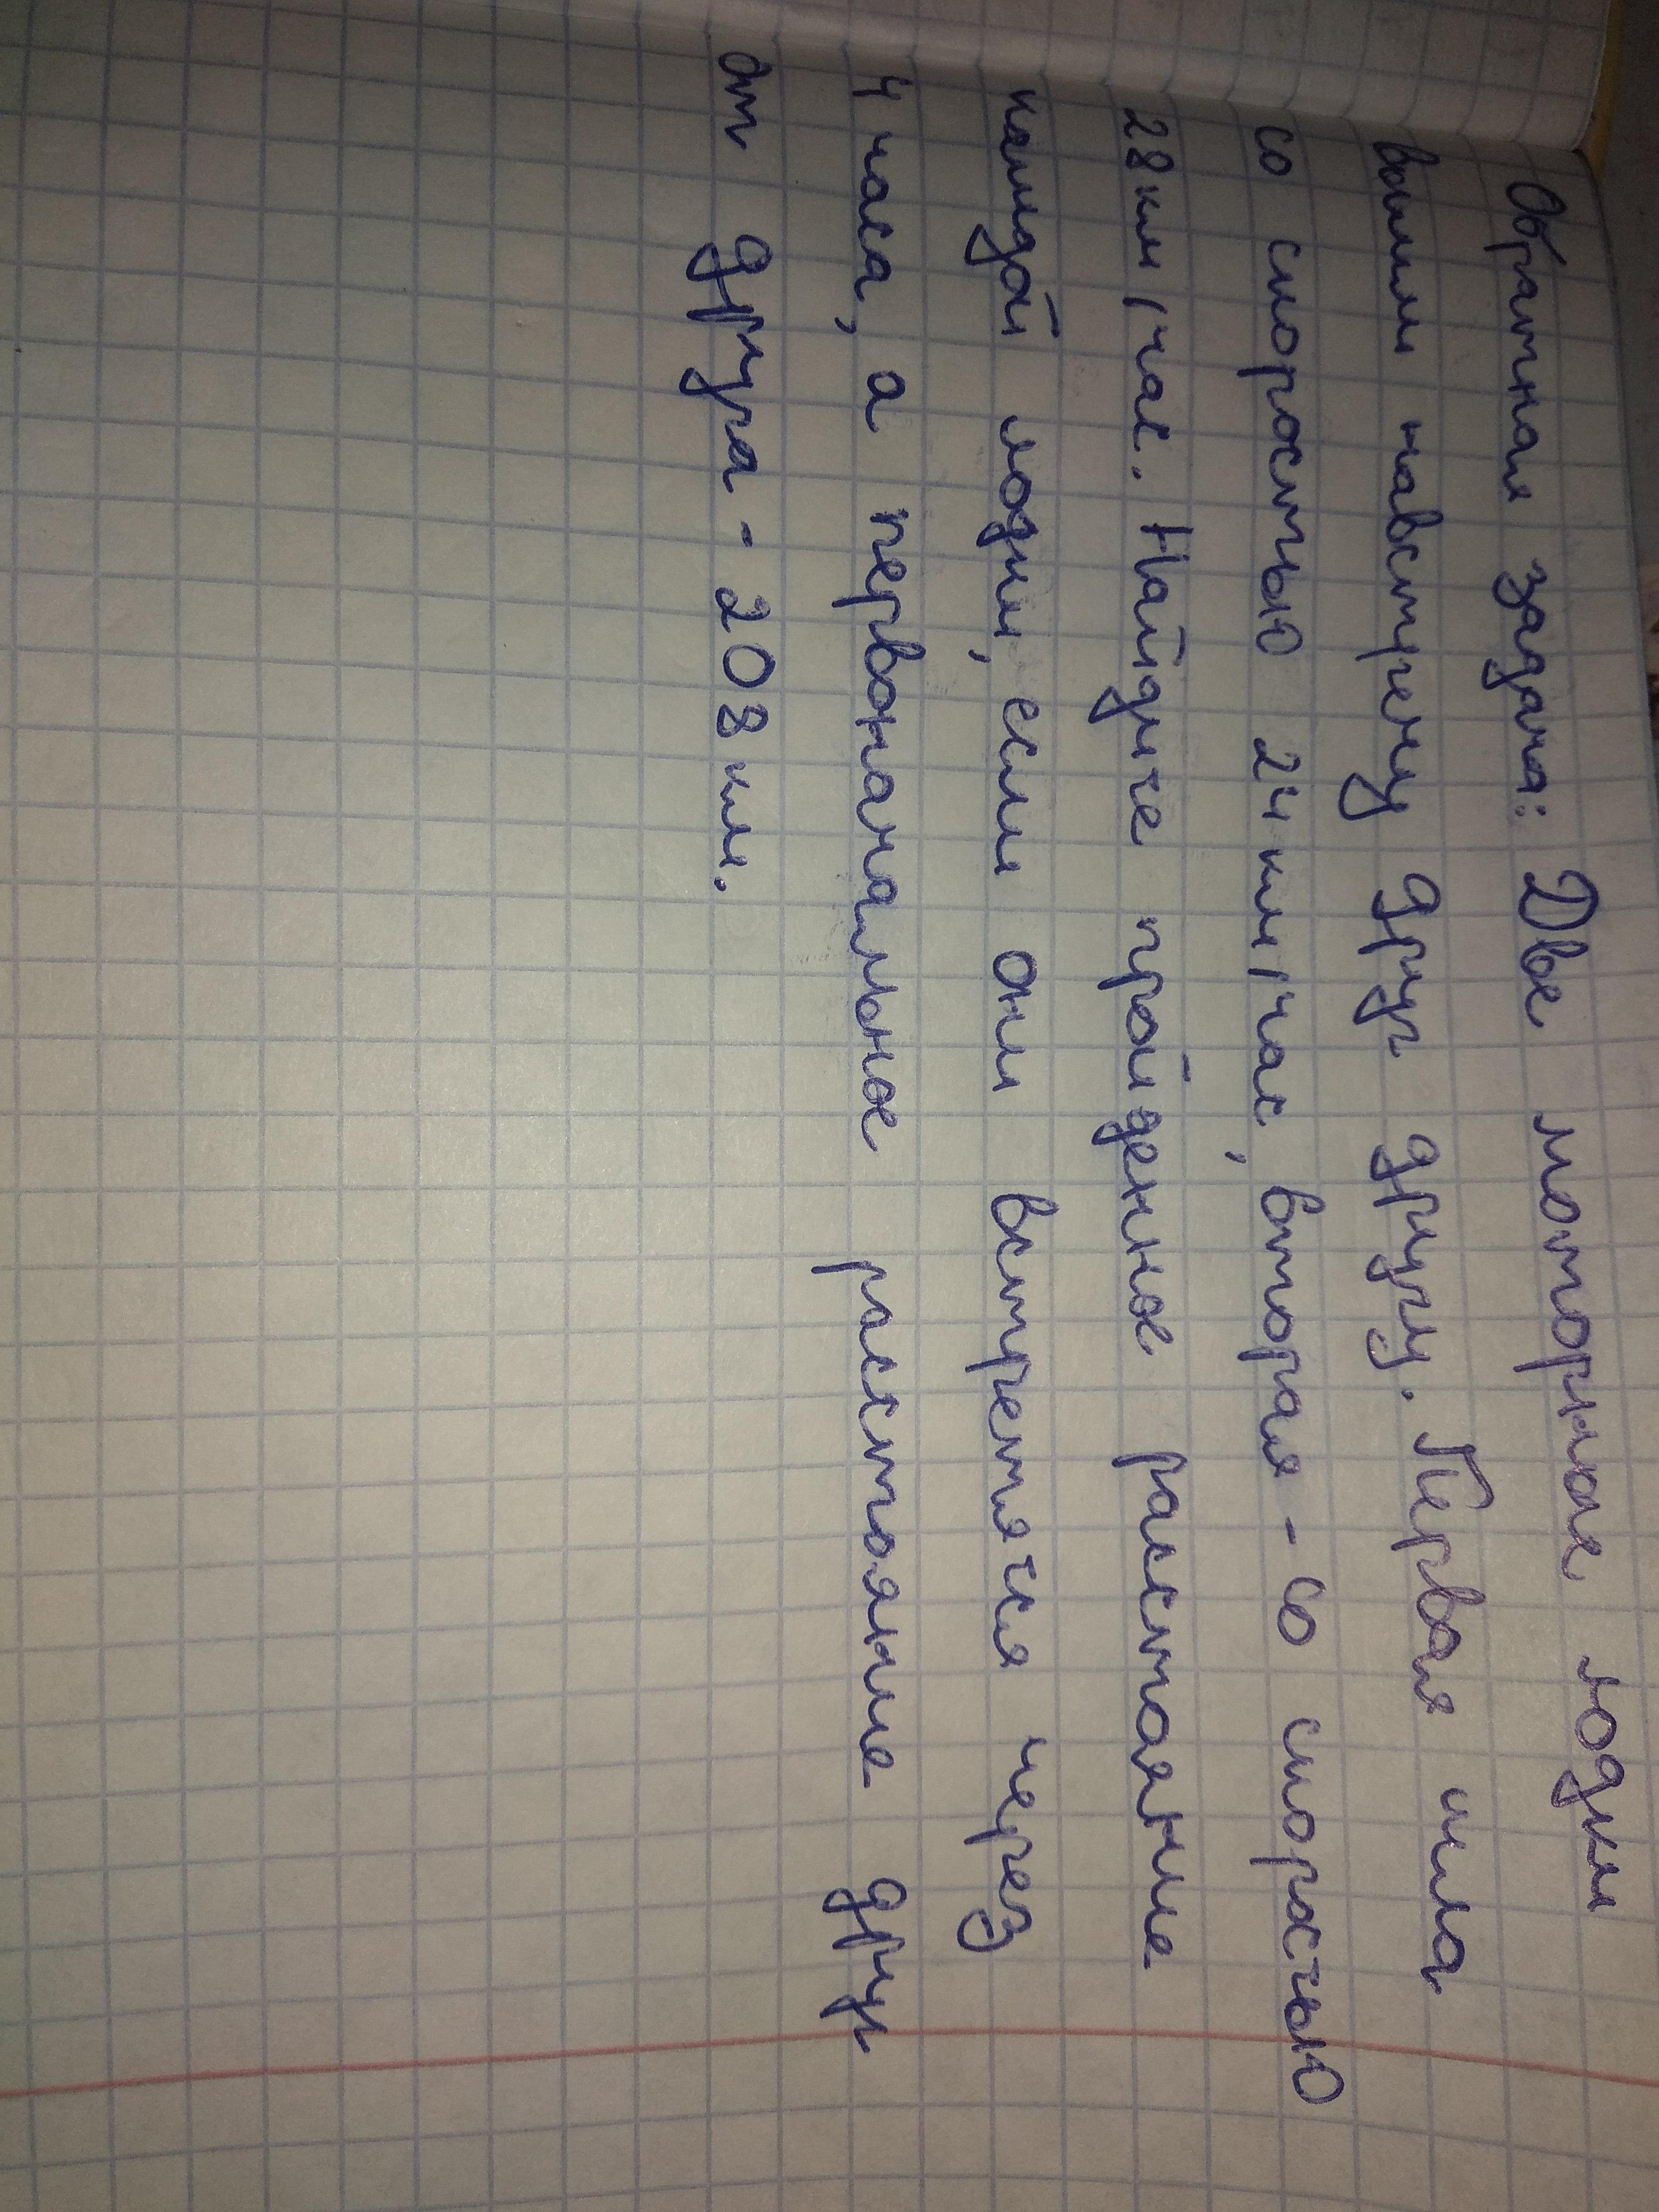 Обратная задача: Две моторные лодки
вышли навстречу друг другу. Первая шла
со скоростью 24 км/час, вторая - со скоростью
28 км/час. Найдите пройденное расстояние
каждой лодки, если они встретятся через
4 часа, а первоначальное расстояние друг
от друга - 208 км.